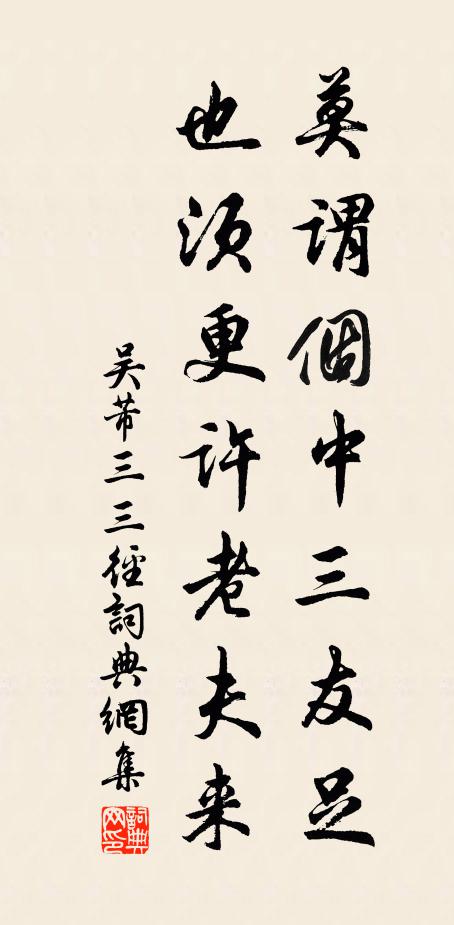 莫謂個中三友足
也須更許老夫来
吴芾三三徑詞典網集
詞典网印